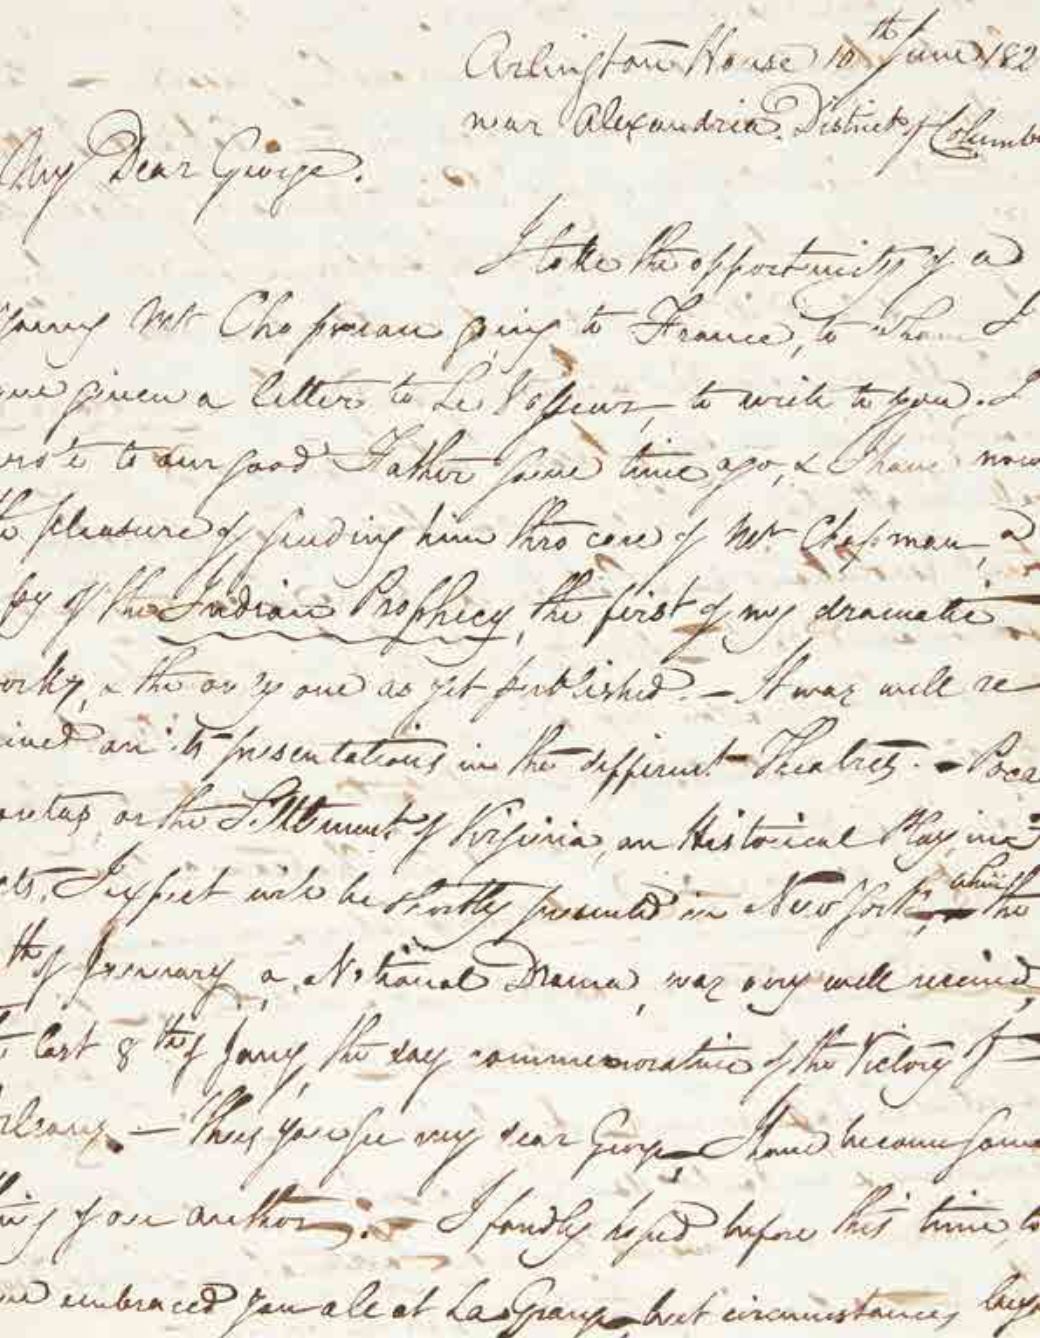 Arlington House 10th June 182
near Alexandria District of Columb
My Dear George.
I take the opportunity of a
young Mr Chapman going to France, to whom I
ave given a letter to Le Vasseur, to write to you. I
to our good Father some time ago, & I have now
the pleasure of sending him thro care of Mr Chapman, a
py of the Indian Prophecy, the first of my dramatic
orks, & the only one as yet published. – It was well re
ived on its presentations in the different Theatres. – Poca
ontas, or the Settlement of Virginia, an Historical Play in 3
cts, I expect will be shortly presented in New York, while the
th of January, a National Drama, was very well received,
last 8th of Jany, the day commemorative of the Victory of
rleans, – Thus you see my dear George, I have become some
thing of an author. – I fondly hoped before this time, to
ave embraced you all at La Grange, but circumstances